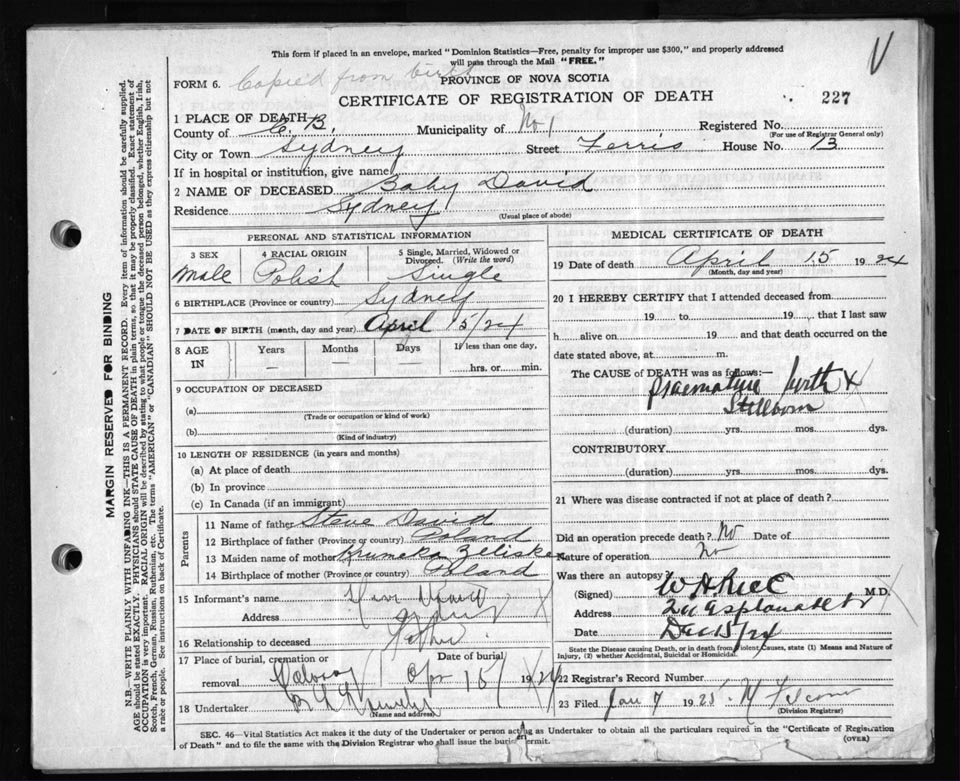 This form if placed in an envelope, marked "Dominion Statistics—Free, penalty for improper use $300," and properly addressed
will pass through the Mail "FREE."
FORM 6. Copied from birth PROVINCE OF NOVA SCOTIA
CERTIFICATE OF REGISTRATION OF DEATH 227
1 PLACE OF DEATH—
County of C. B. Municipality of No 1 Registered No.
(For use of Registrar General only)
City or Town Sydney Street Ferris House No. 13
If in hospital or institution, give name
2 NAME OF DECEASED Baby David
Residence Sydney
(Usual place of abode)
PERSONAL AND STATISTICAL INFORMATION
3 SEX 4 RACIAL ORIGIN 5 Single, Married, Widowed or
Divorced. (Write the word)
Male Polish Single
6 BIRTHPLACE (Province or country) Sydney
7 DATE OF BIRTH (month, day and year) April 15/24
8 AGE IN Years Months Days If less than one day,
— — — hrs. or min.
9 OCCUPATION OF DECEASED
(a)
(Trade or occupation or kind of work)
(b)
(Kind of industry)
10 LENGTH OF RESIDENCE (in years and months)
(a) At place of death
(b) In province
(c) In Canada (if an immigrant)
Parents
11 Name of father Steve David
12 Birthplace of father (Province or country) Poland
13 Maiden name of mother Zeliske
14 Birthplace of mother (Province or country) Poland
15 Informant's name
Address Sydney
16 Relationship to deceased Father
17 Place of burial, cremation or Date of burial
removal Calvary Apr 15 1924
18 Undertaker
(Name and address)
MEDICAL CERTIFICATE OF DEATH
19 Date of death April 15 1924
(Month, day and year)
20 I HEREBY CERTIFY that I attended deceased from
19 to 19 , that I last saw
h alive on 19 and that death occurred on the
date stated above, at m.
The CAUSE of DEATH was as follows:—
Praemature birth X
Stillborn
(duration) yrs. mos. dys.
CONTRIBUTORY.
(duration) yrs. mos. dys.
21 Where was disease contracted if not at place of death?
Did an operation precede death? No Date of
Nature of operation No
Was there an autopsy?
(Signed) M.D.
Address Esplanade
Date Dec 15/24
State the Disease causing Death, or in death from Violent Causes, state (1) Means and Nature of
Injury, (2) whether Accidental, Suicidal or Homicidal.
22 Registrar's Record Number
23 Filed Jan 7 1925
(Division Registrar)
SEC. 46—Vital Statistics Act makes it the duty of the Undertaker or person acting as Undertaker to obtain all the particulars required in the "Certificate of Registration
of Death" and to file the same with the Division Registrar who shall issue the burial permit. (OVER)
MARGIN RESERVED FOR BINDING
N.B.—WRITE PLAINLY WITH UNFADING INK—THIS IS A PERMANENT RECORD. Every item of information should be carefully supplied.
AGE should be stated EXACTLY. PHYSICIANS should STATE CAUSE OF DEATH in plain terms, so that it may be properly classified. Exact statement of
OCCUPATION is very important. RACIAL ORIGIN will be described by stating to what people or tongue the deceased person belonged, whether English, Irish,
Scotch, French, German, Russian, Ruthenian, etc. The terms "AMERICAN" or "CANADIAN" SHOULD NOT BE USED as they express citizenship but not
a race or people. See instructions on back of Certificate.